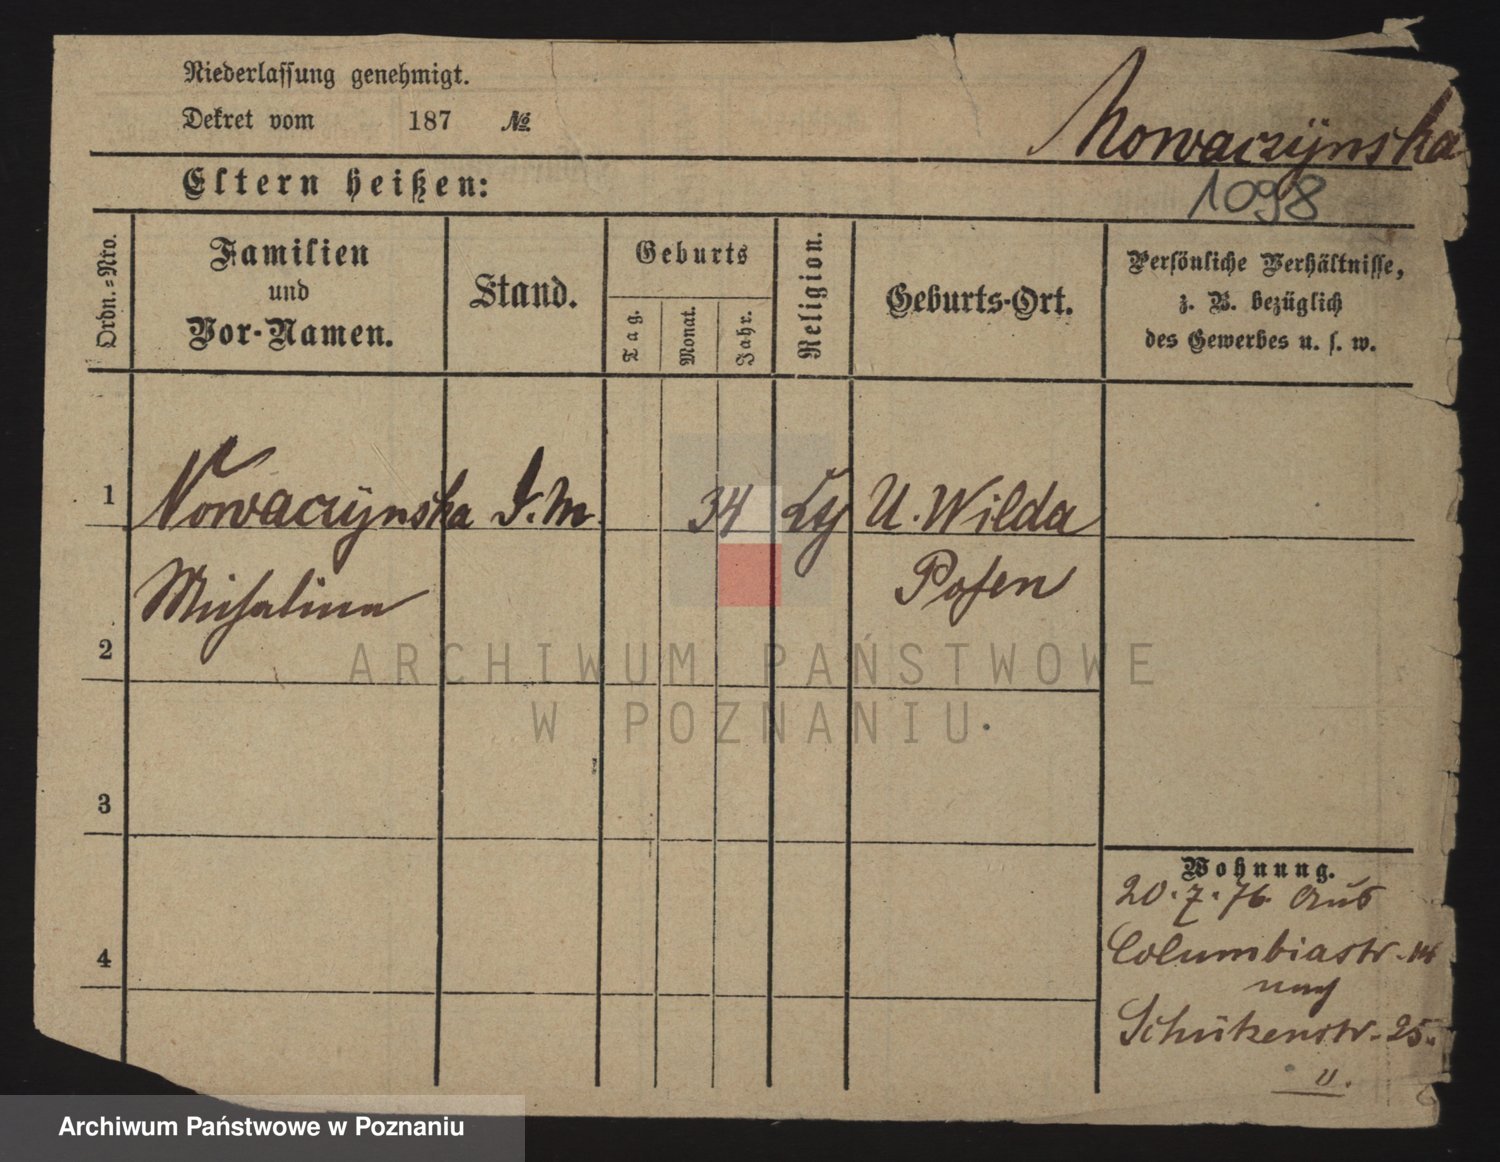 Niederlassung genehmigt.
Dekret vom 187 №
Nowaczÿnska
Eltern heißen:
1098
Ordn.-Nro.
Familien
und
Vor-Namen.
Stand.
Geburts
Tag.
Monat.
Jahr.
Religion.
Geburts-Ort.
Persönliche Verhältnisse,
z. B. bezüglich
des Gewerbes u. s. w.
1 Nowaczÿnska 34 U. Wilda
Posen
Michalina
2
ARCHIWUM PAŃSTWOWE
W POZNANIU
3
Wohnung.
20.7.76. Aus
Columbiastr. 14
nach
Schützenstr. 25.
4
Archiwum Państwowe w Poznaniu